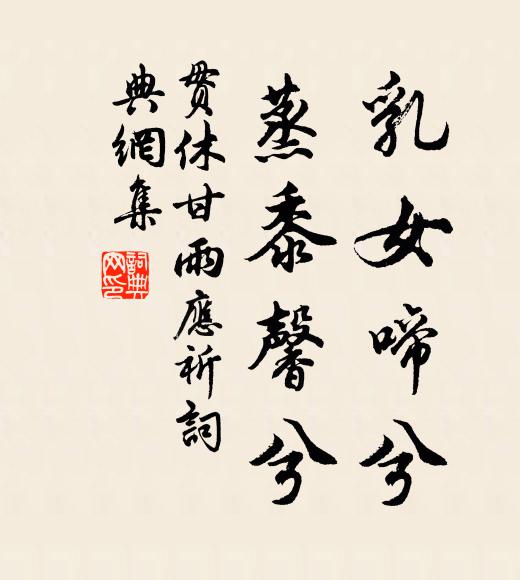 乳女啼兮
蒸黍馨兮
貫休甘雨應祈詞
典網集
詞典
网印